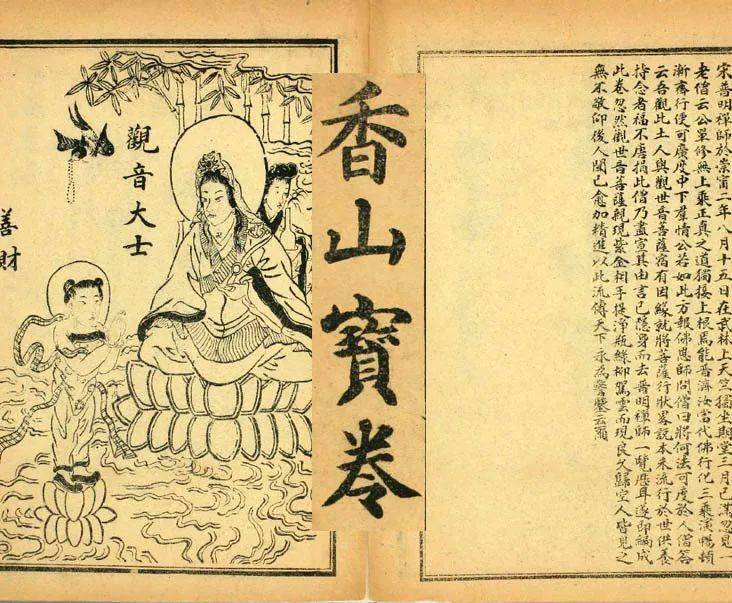 宋普明禪師於崇甯二年八月十五日在武林上天竺獨坐期堂三月已滿忽見一
老僧云公單修無上乘正真之道獨接上根焉能普濟汝當代佛行化三乘演暢頓
漸齊行便可廣度中下羣情公若如此方報佛恩師問僧曰將何法可度於人僧答
云吾觀此土人與觀世音菩薩宿有因緣就將菩薩行狀畧說本末流行於世供養
持念者福不唐捐此僧乃盡宣其由言已隱身而去普明禪師一覽歷耳遂即編成
此卷忽然觀世音菩薩親現紫金相手提淨瓶綠柳駕雲而現良久歸空人皆見之
無不敬仰後人聞已愈加精進以此流傳天下永為警鑒云爾
香山寶卷
觀音大士
善財